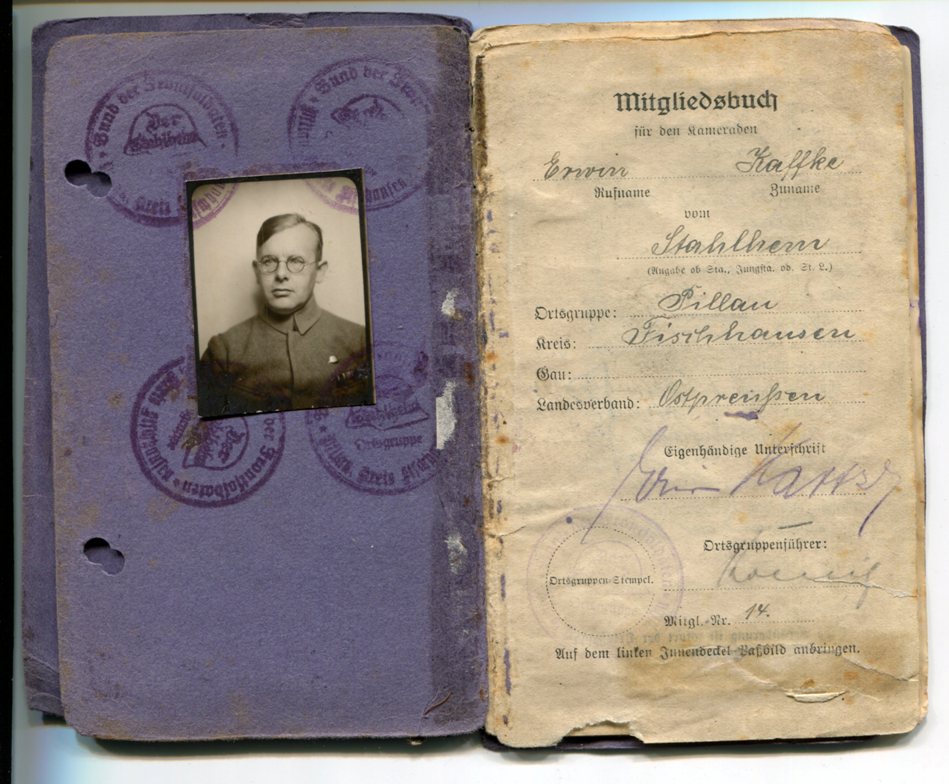 Bund der Frontsoldaten
Der
Stahlhelm
Kreis
Bund der
Kreis
der Frontsoldaten
Der
Stahlhelm
Ortsgruppe
Kreis
Mitgliedsbuch
für den Kameraden
Erwin Kaffke
Rufname Zuname
vom
Stahlhem
(Angabe ob Sta., Jungsta. od. St. L.)
Ortsgruppe: Pillau
Kreis: Fischhausen
Gau:
Landesverband: Ostpreußen
Eigenhändige Unterschrift
Erwin Kaffke
Ortsgruppenführer:
Ortsgruppen-Stempel.
Mitgl.-Nr. 14.
Auf dem linken Innendeckel Paßbild anbringen.